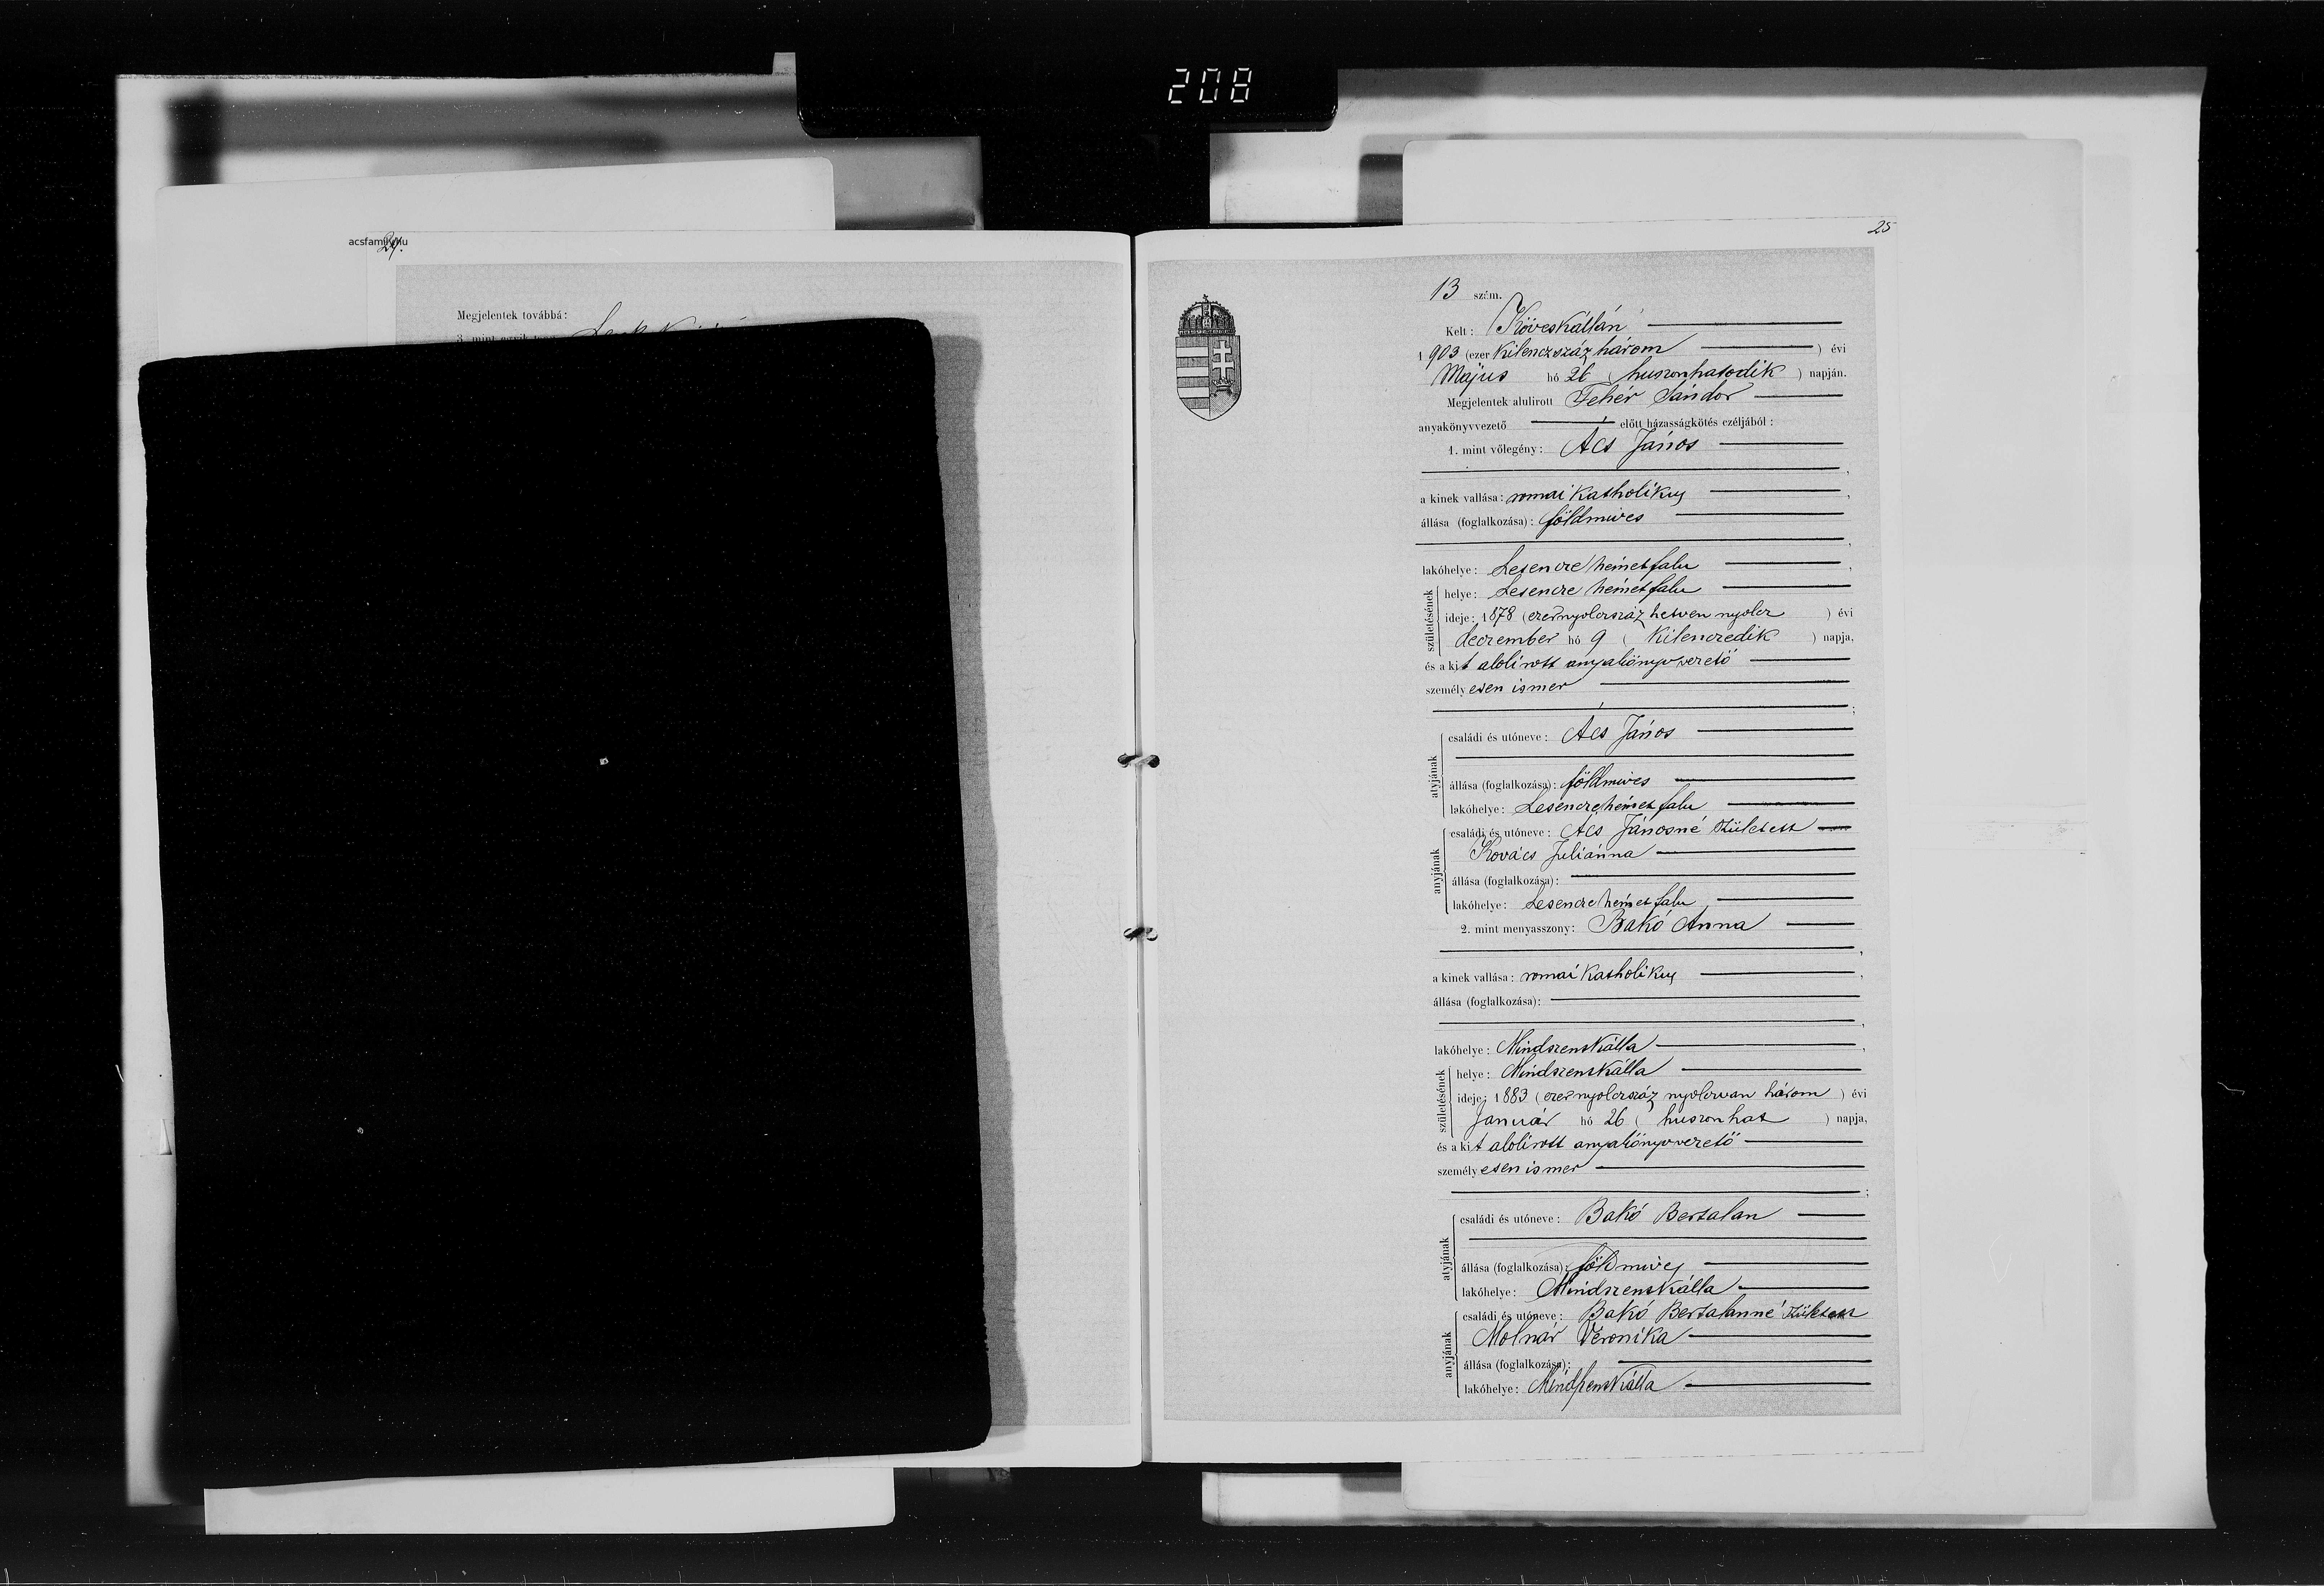 208
acsfamily.hu
24.
Megjelentek továbbá:
25
13 szám.
Kelt: Köveskállán
1903 (ezer kilenczszáz három ) évi
Május hó 26 ( huszonhatodik ) napján.
Megjelentek alulirott Fehér Sándor
anyakönyvvezető előtt házasságkötés czéljából:
1. mint vőlegény: Ács János
a kinek vallása: romai katholikus
állása (foglalkozása): földmives
lakóhelye: Lesencze németfalu
születésének
helye: Lesencze németfalu
ideje: 1878 (ezernyolczszáz hetven nyolcz ) évi
deczember hó 9 ( kilenczedik ) napja,
és a kit alolirott anyakönyvvezető
személyesen ismer
atyjának
családi és utóneve: Ács János
állása (foglalkozása): földmives
lakóhelye: Lesencze németfalu
anyjának
családi és utóneve: Ács Jánosné született
Kovács Juliánna
állása (foglalkozása):
lakóhelye: Lesencze németfalu
2. mint menyasszony: Bakó Anna
a kinek vallása: romai katholikus
állása (foglalkozása):
lakóhelye: Mindszentkálla
születésének
helye: Mindszentkálla
ideje: 1883 (ezernyolczszáz nyolczvan három ) évi
Január hó 26 ( huszonhat ) napja,
és a kit alolirott anyakönyvvezető
személyesen ismer
atyjának
családi és utóneve: Bakó Bertalan
állása (foglalkozása): földmives
lakóhelye: Mindszentkálla
anyjának
családi és utóneve: Bakó Bertalanné született
Molnár Veronika
állása (foglalkozása):
lakóhelye: Mindszentkálla